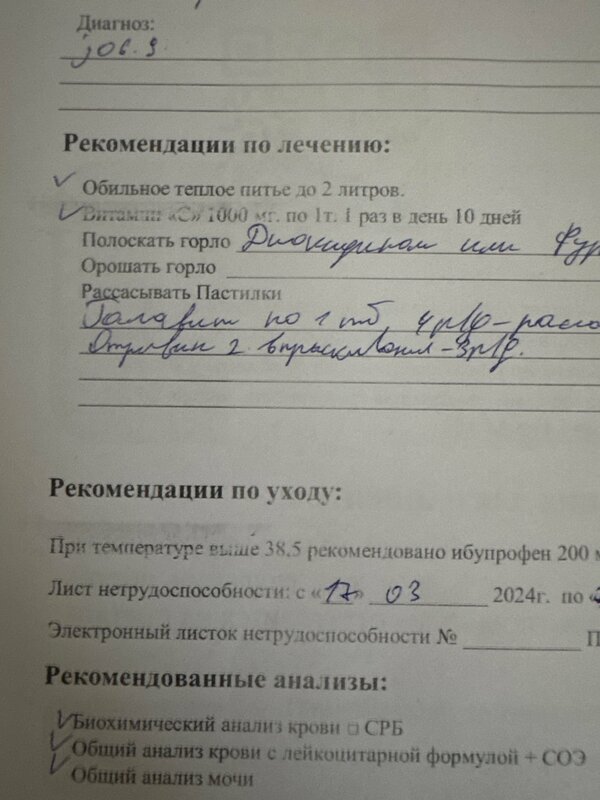 Диагноз:
j06.9
Рекомендации по лечению:
Обильное теплое питье до 2 литров.
Витамин «С» 1000 мг. по 1т. 1 раз в день 10 дней
Полоскать горло Диоксидином или Фур
Орошать горло
Рассасывать Пастилки
Галавит по 1 тб, 4р/д-расса
Отривин 2 впрыскивания-3р/д.
Рекомендации по уходу:
При температуре выше 38.5 рекомендовано ибупрофен 200 м
Лист нетрудоспособности: с «17» 03 2024г. по «
Электронный листок нетрудоспособности № П
Рекомендованные анализы:
Биохимический анализ крови □ СРБ
Общий анализ крови с лейкоцитарной формулой + СОЭ
Общий анализ мочи